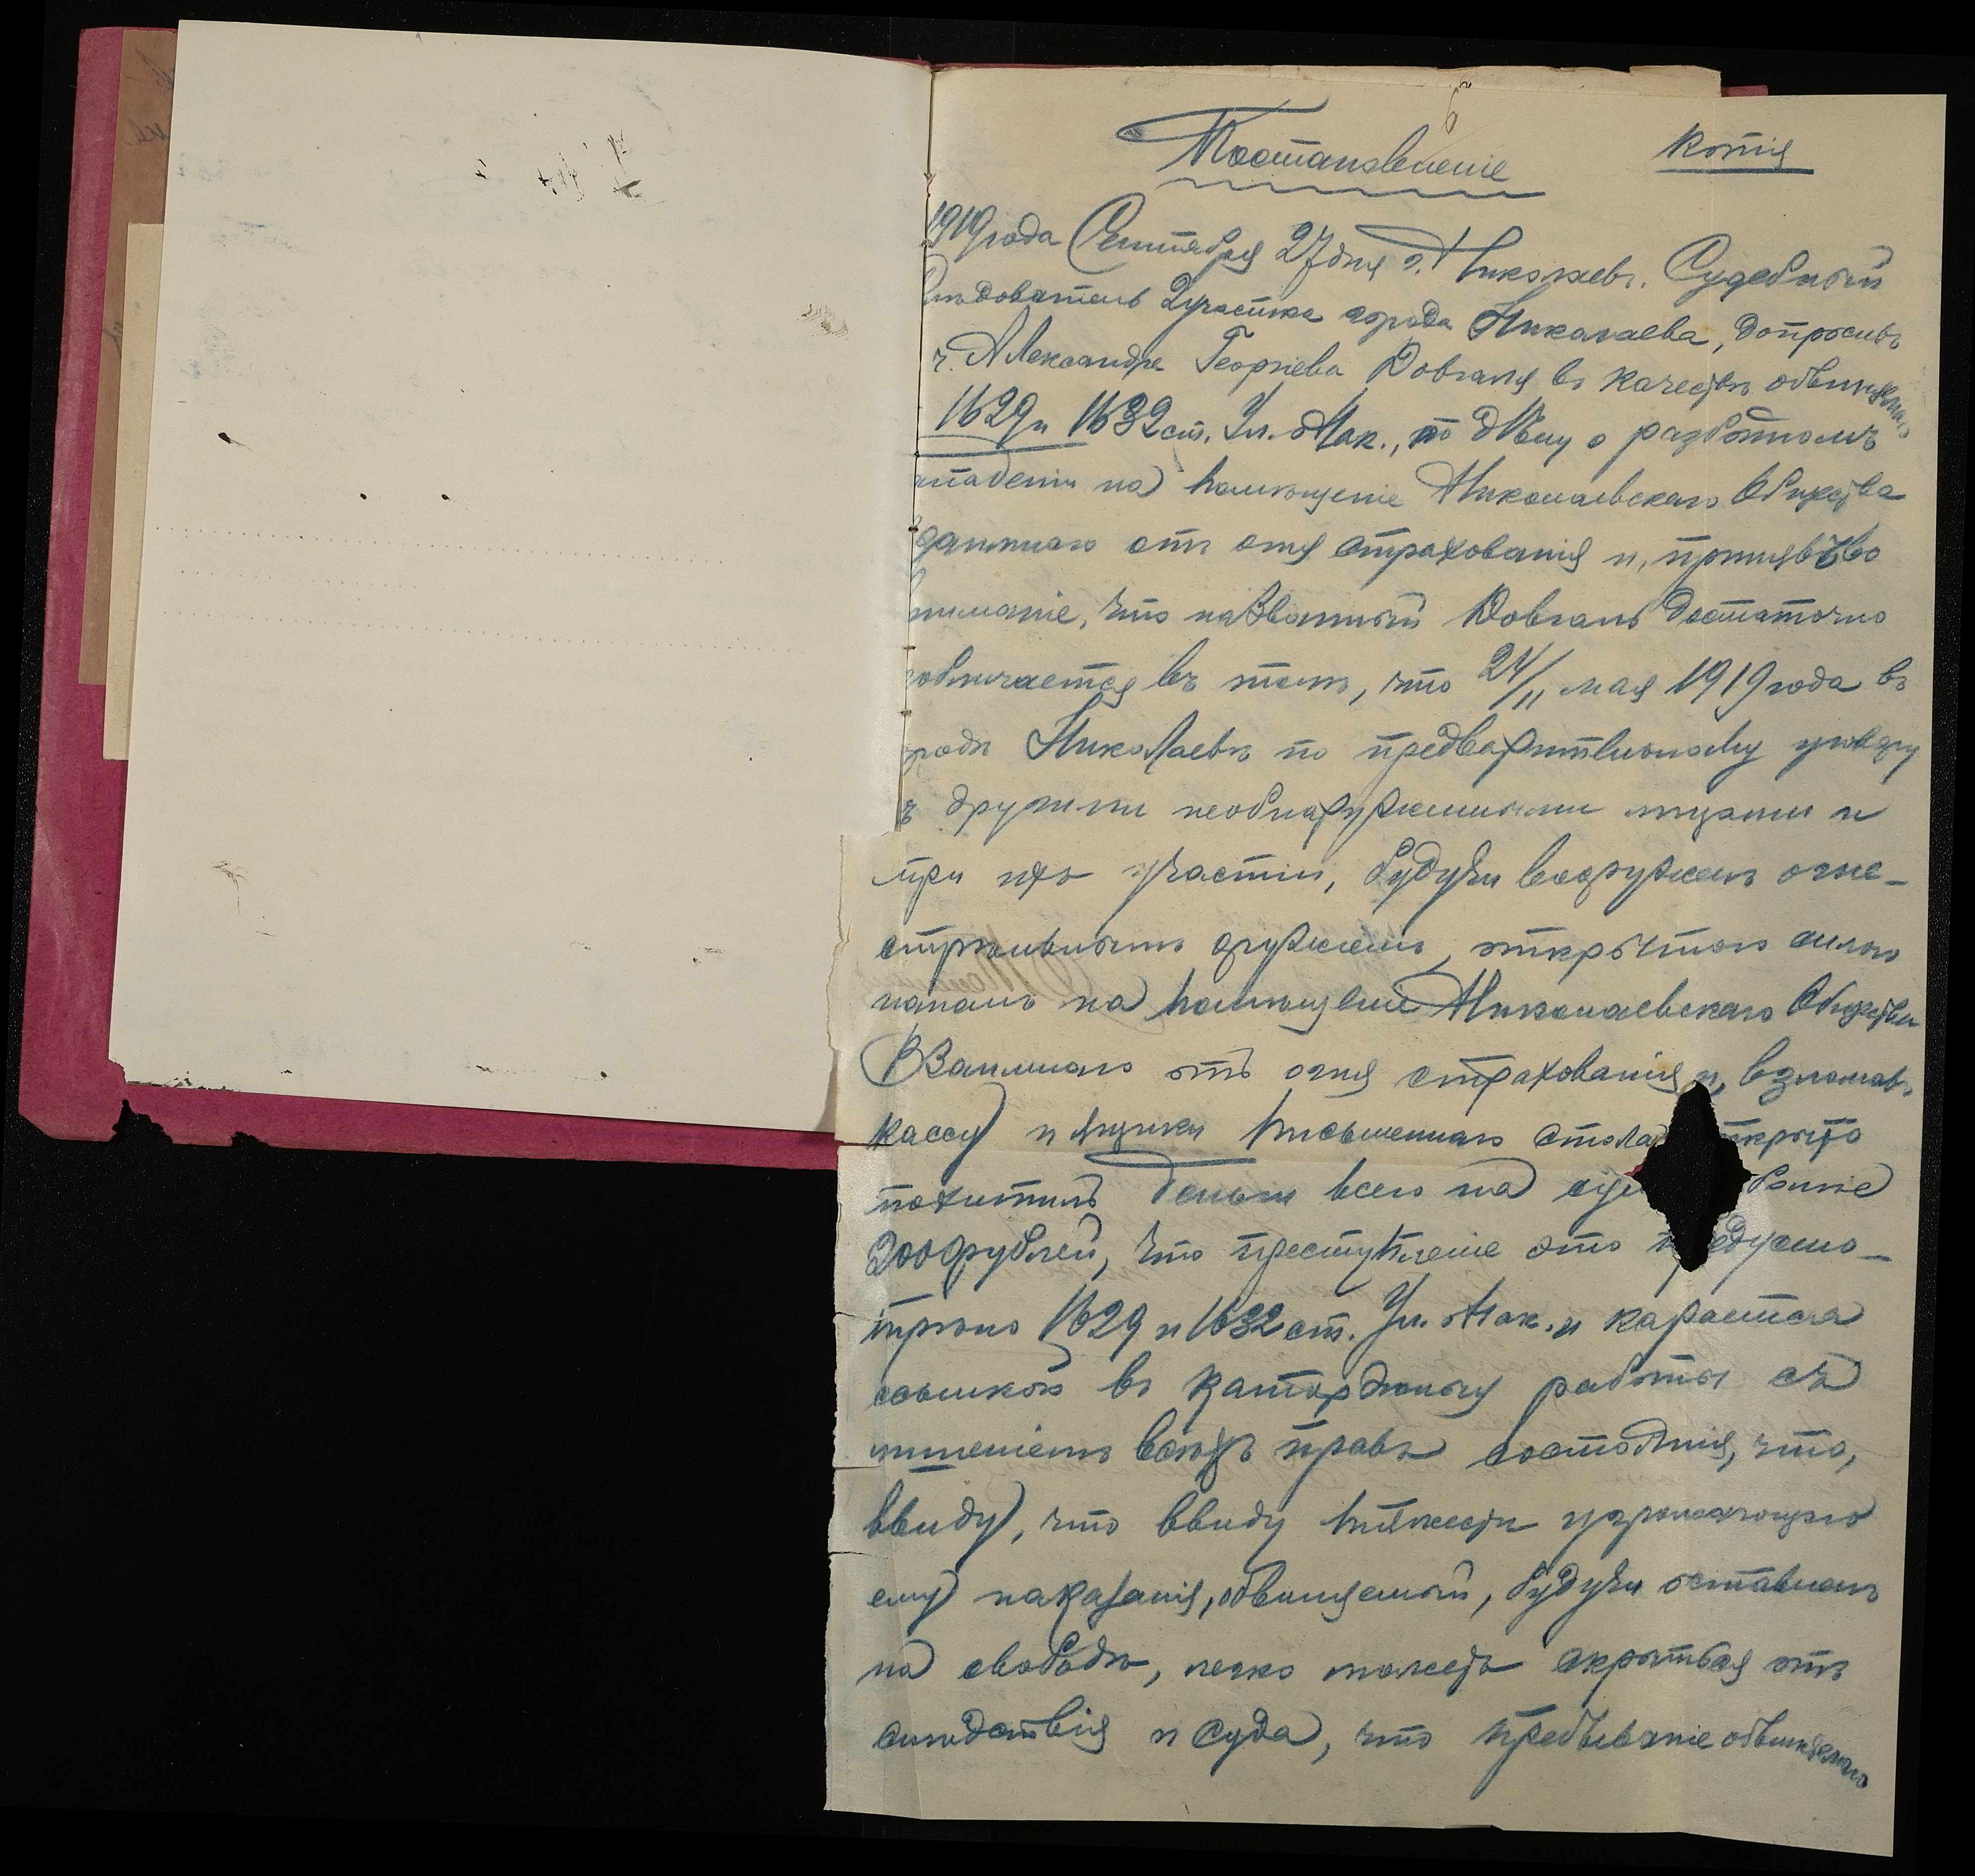 Постановленіе
Копія
1919 года Сентября 27 дня г. Николаевъ. Судебный
слѣдователь 2 участка города Николаева, допросивъ
Александра Георгіева Довганя въ качествѣ обвиняемаго
1629 и 1632 ст. Ул. о Нак., по дѣлу о разбойномъ
нападеніи на помѣщеніе Николаевскаго Общества
взаимнаго отъ огня страхованія и, принявъ во
вниманіе, что названный Довгань достаточно
изобличается въ томъ, что 24/11 мая 1919 года въ
городѣ Николаевѣ по предварительному уговору
съ другими необнаруженными лицами и
при ихъ участіи, будучи вооруженъ огне-
стрѣльнымъ оружіемъ, открытою силою
напалъ на помѣщеніе Николаевскаго Общества
Взаимнаго отъ огня страхованія и, взломавъ
кассу и ящики письменнаго стола ткрыто
похитилъ деньги всего на су болѣе
2000 рублей, что преступленіе это предусмо-
трѣно 1629 и 1632 ст. Ул. о Нак. и карается
ссылкой въ каторжныя работы съ
лишеніемъ всѣхъ правъ состоянія, что,
ввиду, что ввиду тяжести угрожающаго
ему наказанія, обвиняемый, будучи оставленъ
на свободѣ, легко можетъ скрыться отъ
слѣдствія и суда, что пребываніе обвиняемаго